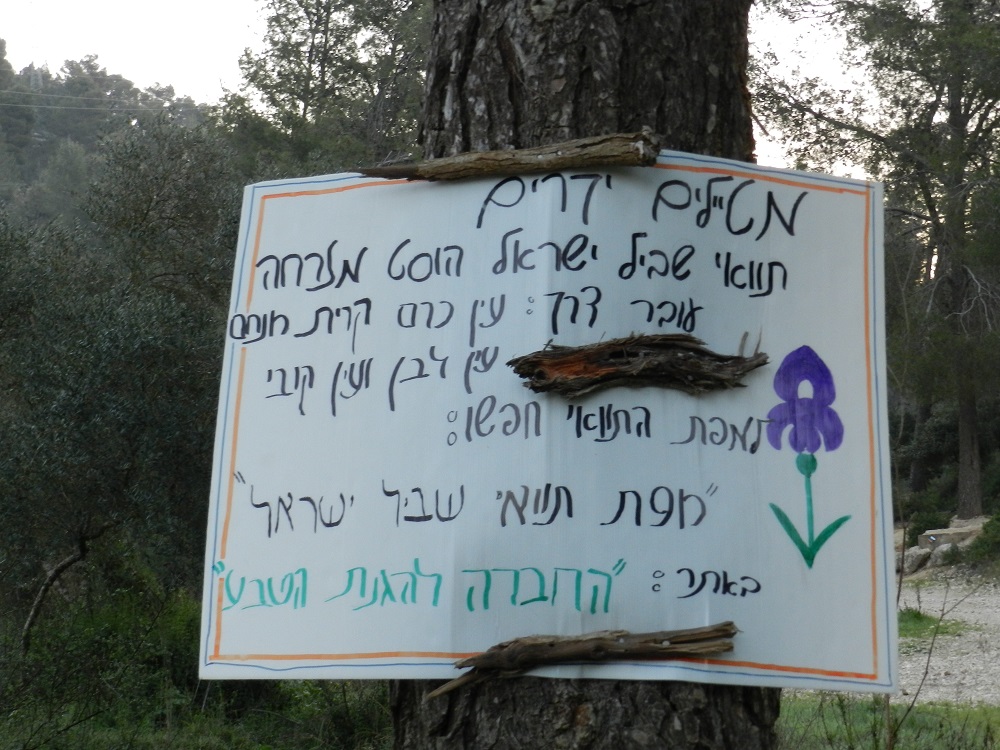 מטיילים יקרים
תוואי שביל ישראל הוסט מזרחה
עובר דרך: עין כרם קרית מנחם
עין לבן ועין קובי
למפת התוואי חפשו:
"מפת תוואי שביל ישראל"
באתר: "החברה להגנת הטבע"